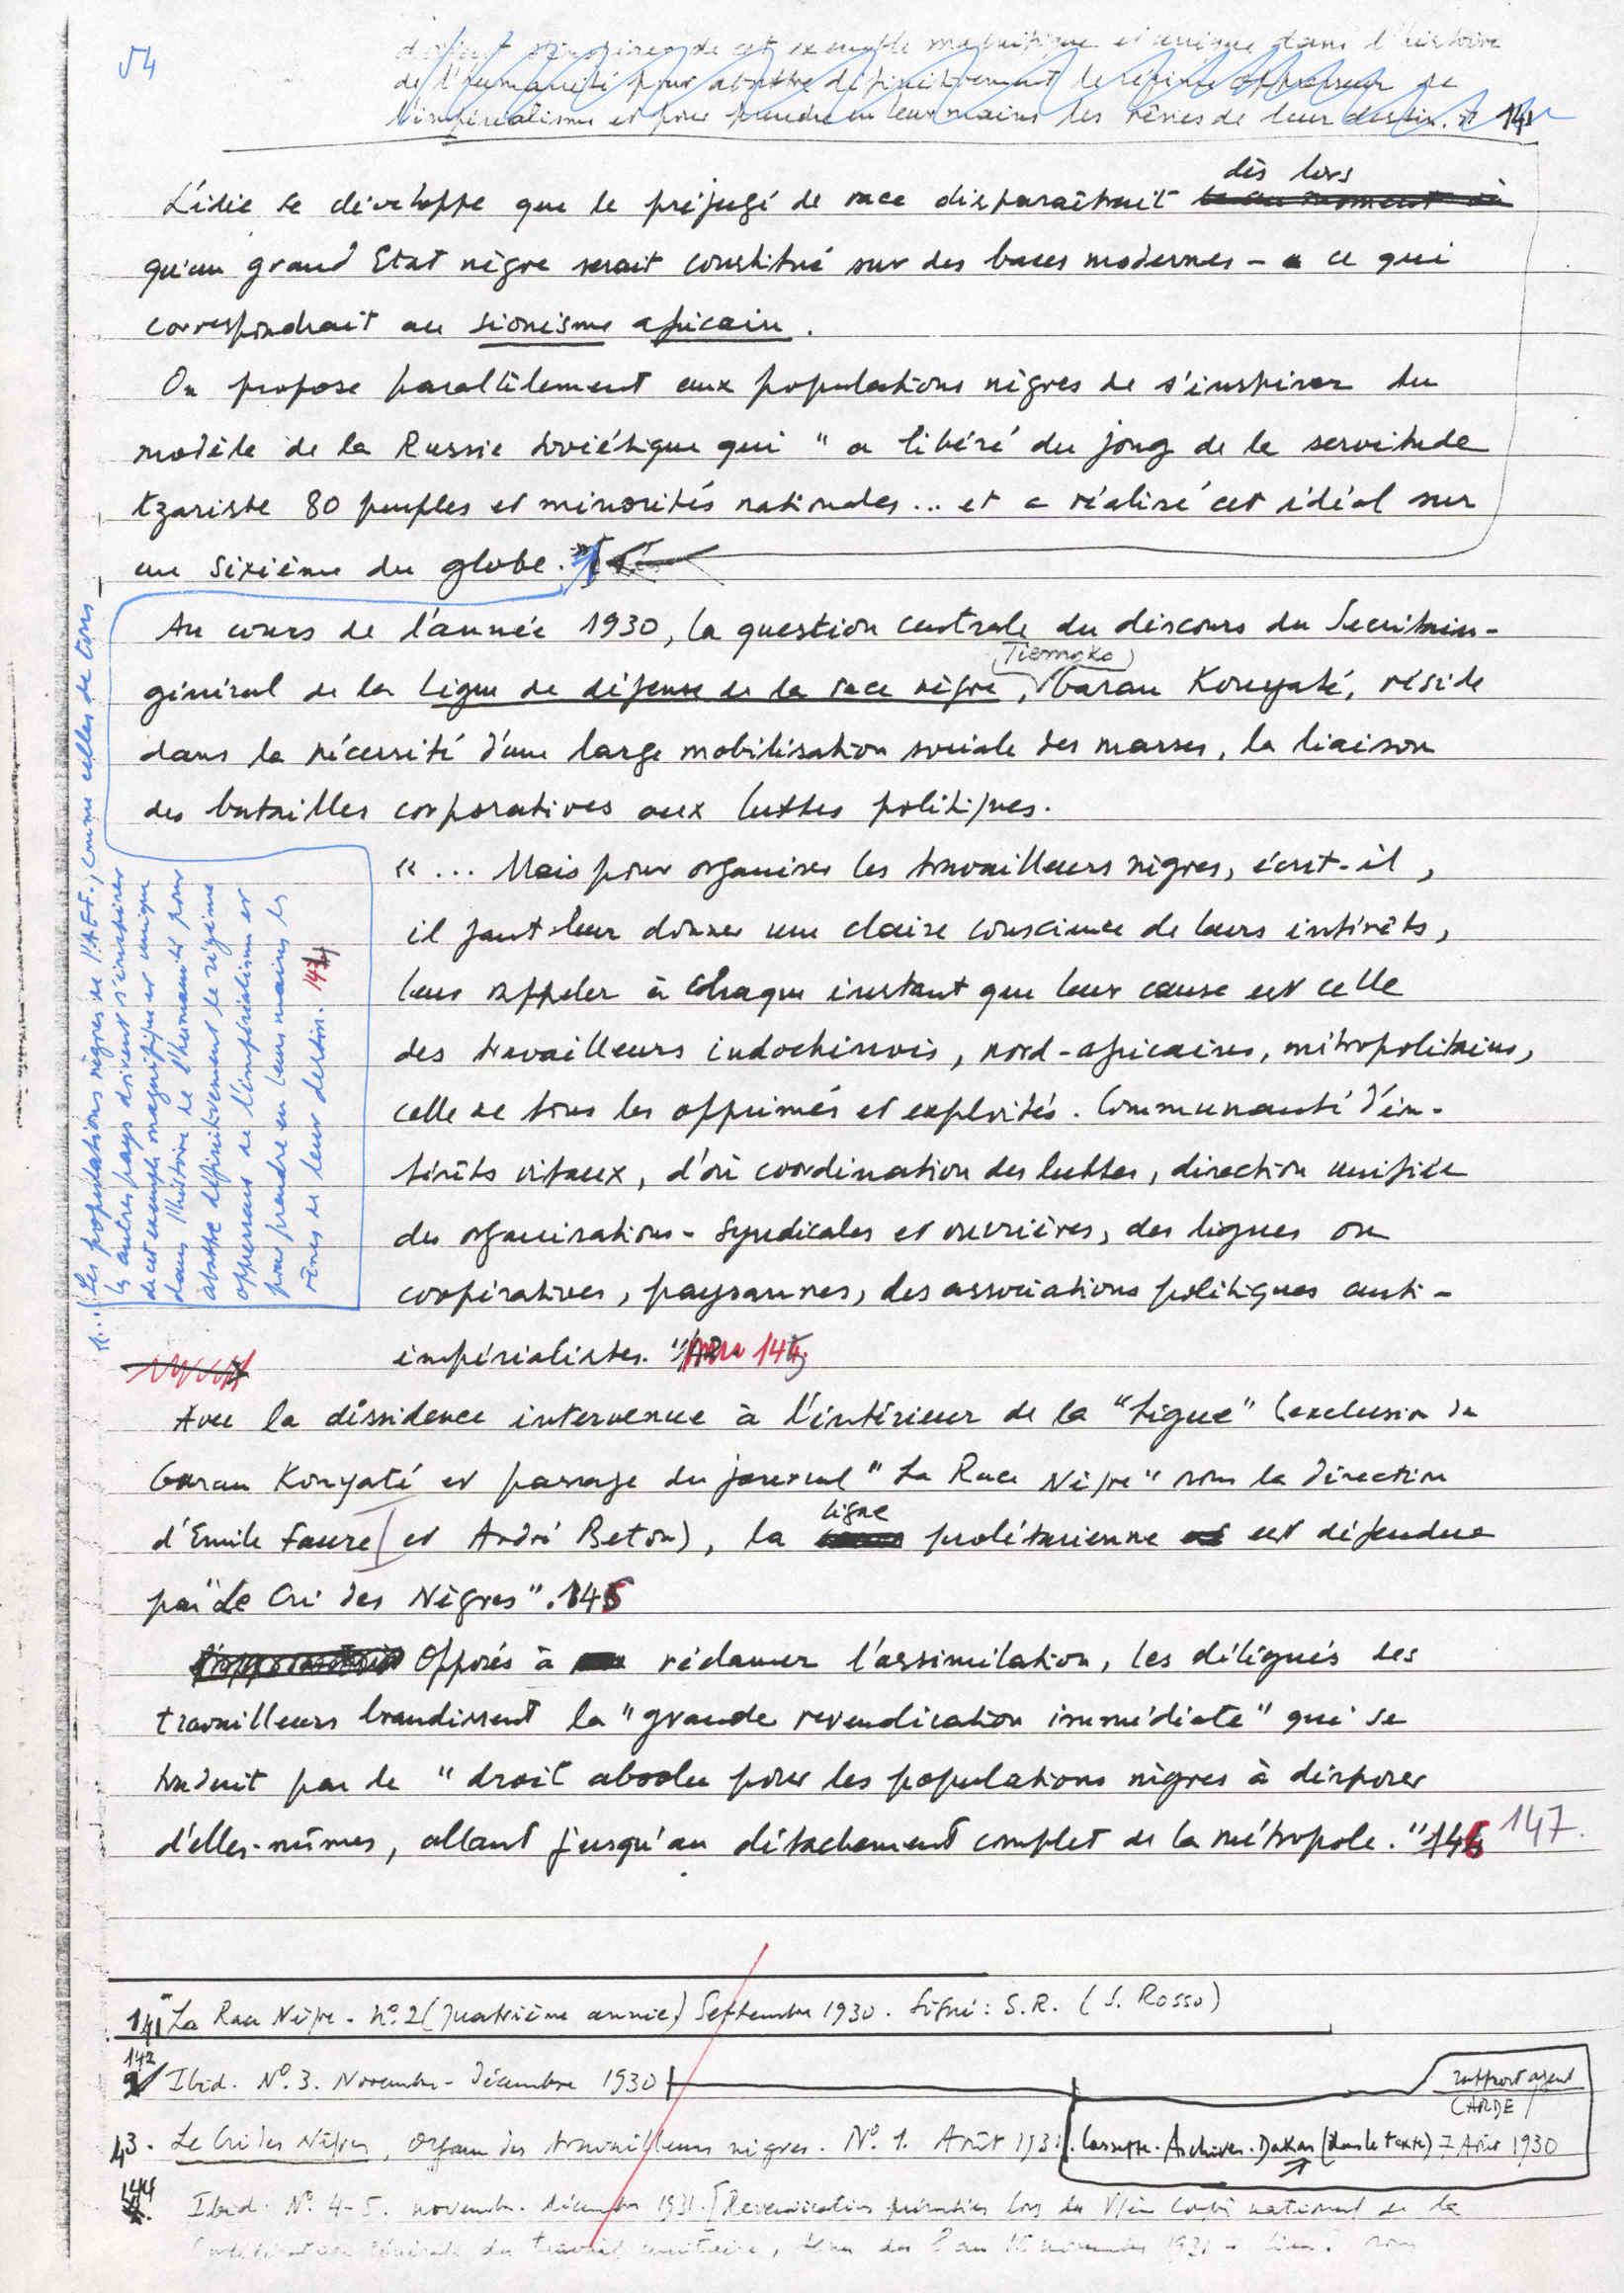 54
doivent s'inspirer de cet exemple magnifique et unique dans l'histoire
de l'humanité pour abattre définitivement le régime oppresseur de
l'impérialisme et pour prendre en leurs mains les rênes de leur destin. 141
dès lors
L'idée se développe que le préjugé de race disparaîtrait le au moment où
qu'un grand Etat nègre serait constitué sur des bases modernes - ce qui
correspondrait au sionisme africain.
On propose parallèlement aux populations nègres de s'inspirer du
modèle de la Russie soviétique qui "a libéré du joug de la servitude
tzariste 80 peuples et minorités nationales... et a réalisé cet idéal sur
un sixième du globe."
Au cours de l'année 1930, la question centrale du discours du Secrétaire-
(Tiemoko)
général de la Ligue de défense de la race nègre, Garan Kouyaté, réside
dans la nécessité d'une large mobilisation sociale des masses, la liaison
des batailles corporatives aux luttes politiques.
«... Mais pour organiser les travailleurs nègres, écrit-il,
il faut leur donner une claire conscience de leurs intérêts,
leur rappeler à chaque instant que leur cause est celle
des travailleurs indochinois, nord-africains, métropolitains,
celle de tous les opprimés et exploités. Communauté d'in-
térêts vitaux, d'où coordination des luttes, direction unifiée
des organisations - syndicales et ouvrières, des ligues ou
coopératives, paysannes, des associations politiques anti-
impérialistes." 144
"...(Les populations nègres de l'A.E.F., comme celles de tous
les autres pays doivent s'inspirer
de cet exemple magnifique et unique
dans l'histoire de l'humanité pour
abattre définitivement le régime
oppresseur de l'impérialisme et
pour prendre en leurs mains les
rênes de leur destin. 143
Avec la dissidence intervenue à l'intérieur de la "Ligue" (exclusion de
Garan Kouyaté et passage du journal "La Race Nègre" sous la direction
ligne
d'Emile Faure [et André Beton), la prolétarienne est défendue
par "Le Cri des Nègres". 145
Opposés à réclamer l'assimilation, les délégués des
travailleurs brandissent la "grande revendication immédiate" qui se
traduit par le "droit absolu pour les populations nègres à disposer
d'elles-mêmes, allant jusqu'au détachement complet de la métropole." 146 147.
141 La Race Nègre. N°.2 (Quatrième année) Septembre 1930. Signé: S.R. (S. Rosso)
142
Ibid. N°.3. Novembre-Décembre 1930
rapport agent
CARDE
43. Le Cri des Nègres, Organe des travailleurs nègres. N°.1. Août 1931. Cassette. Archives. Dakar (dans le texte) 7 Août 1930
144
Ibid. N°. 4-5. novembre. décembre 1931. [Revendications présentées lors du congrès national de la
Confédération Générale du travail unitaire, tenu du 8 au 15 novembre 1931